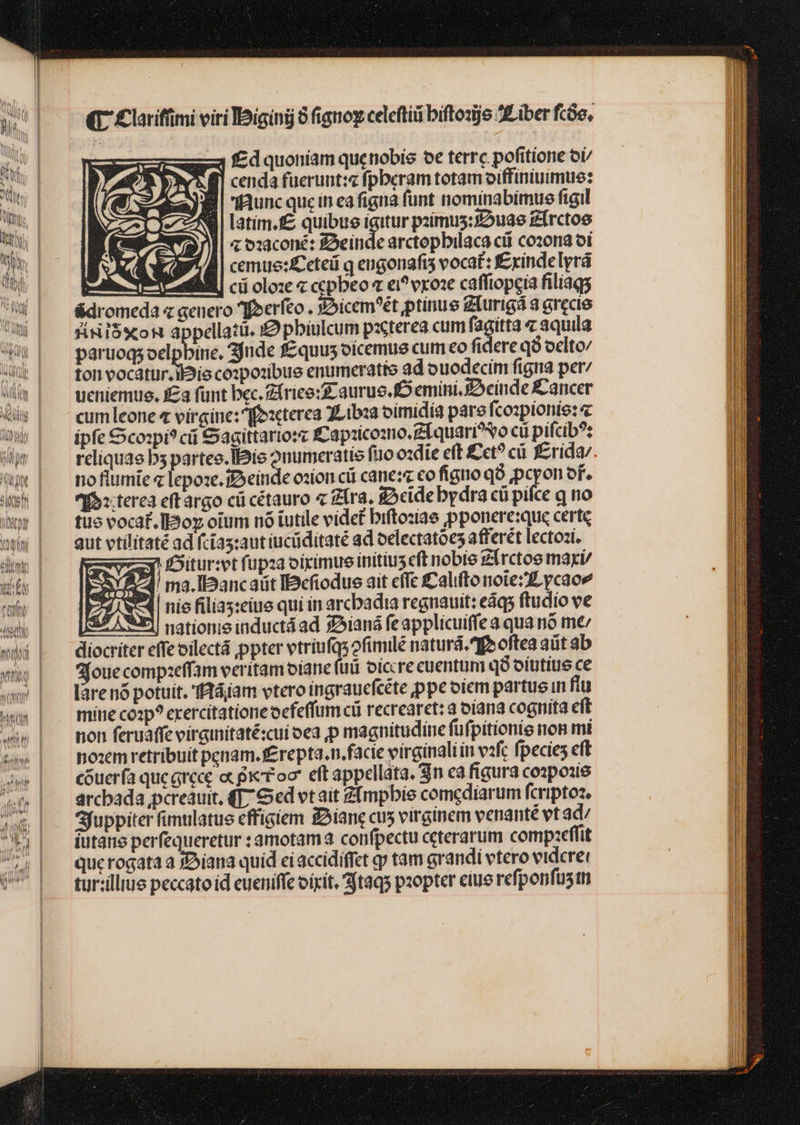 ❡ Clariſſimi viri Higinij ð ſignoꝝ celeſtiũ hiſtorijs Liber ſcðs.
Ed quoniam que nobis de terre poſitione di/
cenda fuerunt:⁊ ſpheram totam diffiniuimus:
Nunc que in ea ſigna ſunt nominabimus ſigil
latim. E quibus igitur primuʒ: Duas Arctos
⁊ draconē: Deinde arctophilaca cũ corona di
cemus: Ceteũ q engonaſis vocat̃: Exinde lyrā
cũ olore ⁊ cepheo ⁊ eiꝰ vxore caſſiopeia filiaqʒ
ãdromeda ⁊ genero Perſeo. Dicemꝰ et ꝓtinus Aurigā a grecis
ἡνίοχον appellatũ. Ophiulcum preterea cum ſagitta ⁊ aquila
paruoqʒ delphine. Inde Equus dicemus cum eo ſidere qð delto/
ton vocatur. His corporibus enumeratis ad duodecim ſigna per/
ueniemus. Ea ſunt hec. Aries: Taurus. Gemini. Deinde Cancer
cum leone ⁊ virgine: Preterea Libra dimidia pars ſcorpionis: ⁊
ipſe Scorpiꝰ cũ Sagittario: ⁊ Capricorno. Aquariꝰ vo cũ piſcibꝰ:
reliquas hʒ partes. His ꝯnumeratis ſuo ordie eſt Cetꝰ cũ Erida/.
no flumie ⁊ lepore. Deinde orion cũ cane: ⁊ eo ſigno qð ꝓcyon dr̃.
Preterea eſt argo cũ cētauro ⁊ Ara. Deide hydra cũ piſce q no
tus vocat̃. Hoꝝ oium nõ iutile videt̃ hiſtorias ꝓponere: que certe
aut vtilitatē ad ſcĩas: aut iucũditatē ad delectatões afferēt lectori.
Gitur: vt ſupra diximus initiuʒ eſt nobis Arctos maxi/
ma. Hanc aũt Heſiodus ait eſſe Caliſto noie: Lycao⸗
nis filiaʒ: eius qui in archadia regnauit: eāqʒ ſtudio ve
nationis inductā ad Dianā ſe applicuiſſe a qua nõ me/
diocriter eſſe dilectā ꝓpter vtriuſqʒ ꝯſimilē naturā. Poſtea aũt ab
Ioue compreſſam veritam diane ſuũ dicere euentum qð diutius ce
lare nõ potuit. Nā iam vtero ingraueſcēte ꝓpe diem partus in flu
mine corpꝰ exercitatione defeſſum cũ recrearet: a diana cognita eſt
non ſeruaſſe virginitatē: cui dea ꝓ magnitudine ſuſpitionis non mi
norem retribuit penam. Erepta.n. facie virginali in vrſe ſpecieʒ eſt
cõuerſa que grece αρκτοσ eſt appellata. In ea figura corporis
archada ꝓcreauit. ❡ Sed vt ait Amphis comediarum ſcriptor.
Iuppiter ſimulatus effigiem Diane cuʒ virginem venantē vt ad/
iutans perſequeretur: amotam a conſpectu ceterarum compreſſit
que rogata a Diana quid ei accidiſſet ꝙ tam grandi vtero videre
tur: illius peccato id eueniſſe dixit. Itaqʒ propter eius reſponſuʒ in